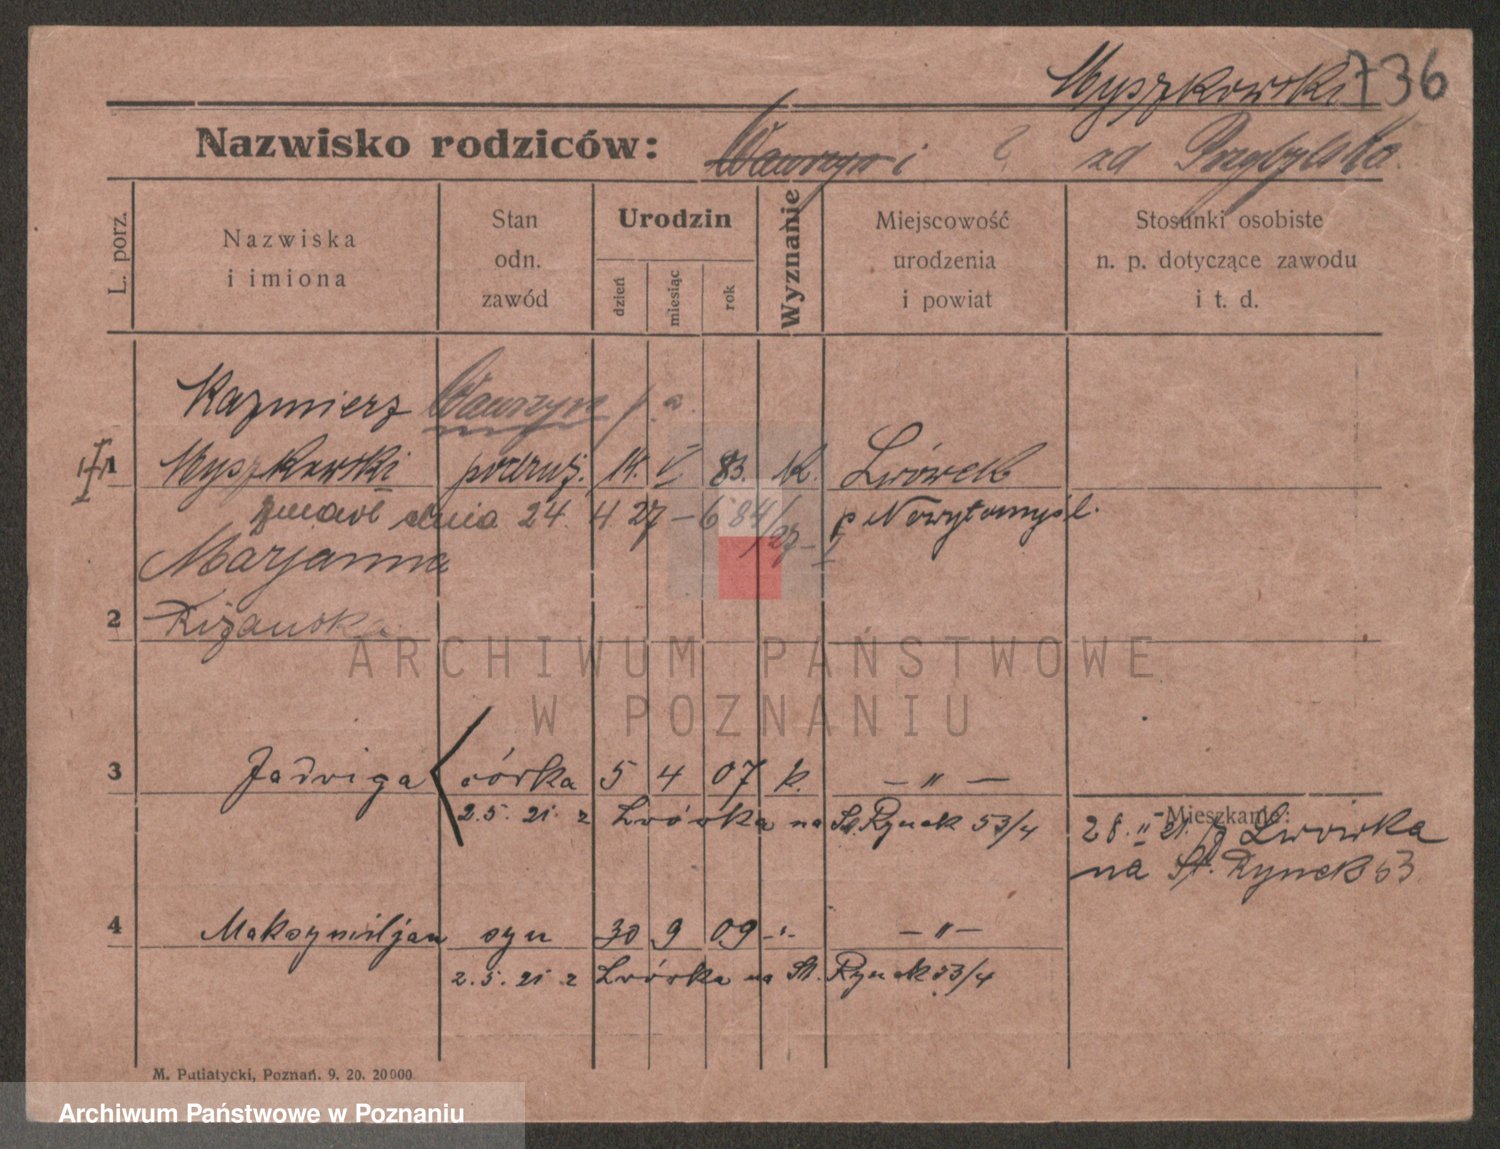 Myszkowski 736
Nazwisko rodziców: Wawrzyn i ? zd Przybylska.
L. porz.
Nazwiska
i imiona
Stan
odn.
zawód
Urodzin
dzień
miesiąc
rok
Wyznanie
Miejscowość
urodzenia
i powiat
Stosunki osobiste
n. p. dotyczące zawodu
i t. d.
Kazimierz Wawrzyn
1 Myszkowski 14. V 83. K. Lwówek
zmarł dnia 24 4 27 - 684/27 - p Nowytomyśl.
Marjanna
2
3 Jadwiga córka 5 4 07 k. - " -
2.5. 21. z Lwówka na St. Rynek 53/4
Mieszkanie:
28. II 21. z Lwówka
na St. Rynek 53
4 Maksymiljan syn 30 9 09 -"- - " -
2.5. 21 z Lwówka na St. Rynek 53/4
M. Putiatycki, Poznań. 9. 20. 20000
ARCHIWUM PAŃSTWOWE
W POZNANIU
Archiwum Państwowe w Poznaniu